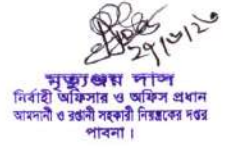 ২৭/৮/২৩
মৃত্যুঞ্জয় দাস
নির্বাহী অফিসার ও অফিস প্রধান
আমদানী ও রপ্তানী সহকারী নিয়ন্ত্রকের দপ্তর
পাবনা।